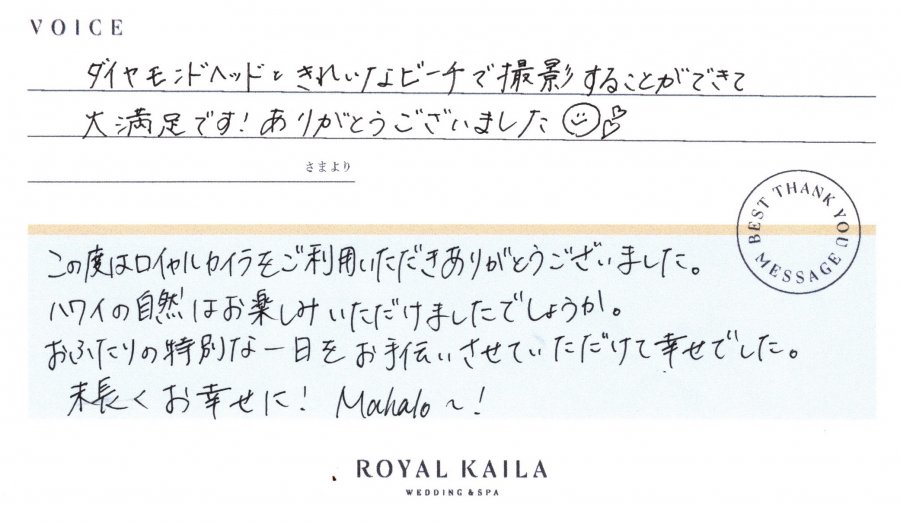 VOICE
ダイヤモンドヘッドときれいなビーチで撮影することができて
大満足です!ありがとうございました
さまより
BEST THANK YOU MESSAGE
この度はロイヤルカイラをご利用いただきありがとうございました。
ハワイの自然はお楽しみいただけましたでしょうか。
おふたりの特別な一日をお手伝いさせていただけて幸せでした。
末長くお幸せに! Mahalo~!
ROYAL KAILA
WEDDING & SPA